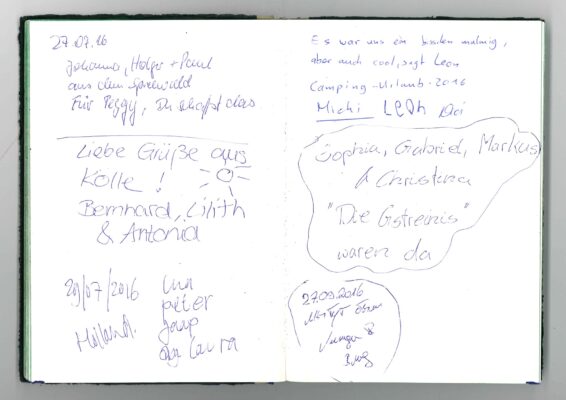 27.07.16
Johanna, Holger + Paul
aus dem Spreewald
Für Peggy, Du schaffst das
Liebe Grüße aus
Kölle !
Bernhard, Lilith
& Antonia
29/07/2016
Holland.
peter
Laura
Es war uns ein bisschen mulmig,
aber auch cool, sagt Leon
Camping-Urlaub-2016
Michi Leon
Sophia, Gabriel, Markus
& Christina
"Die Gstreinis"
waren da
27.09.2016